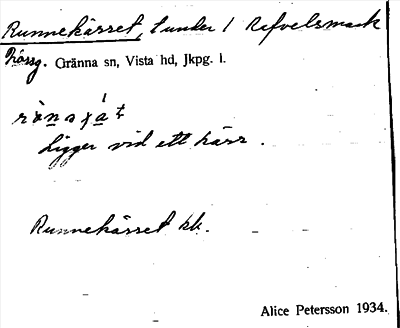 Runnekärret, t under 1 Refvelsmark
Gränna sn, Vista hd, Jkpg. l.
Ligger vid ett kärr.
Runnekärret kk.
Alice Petersson 1934.